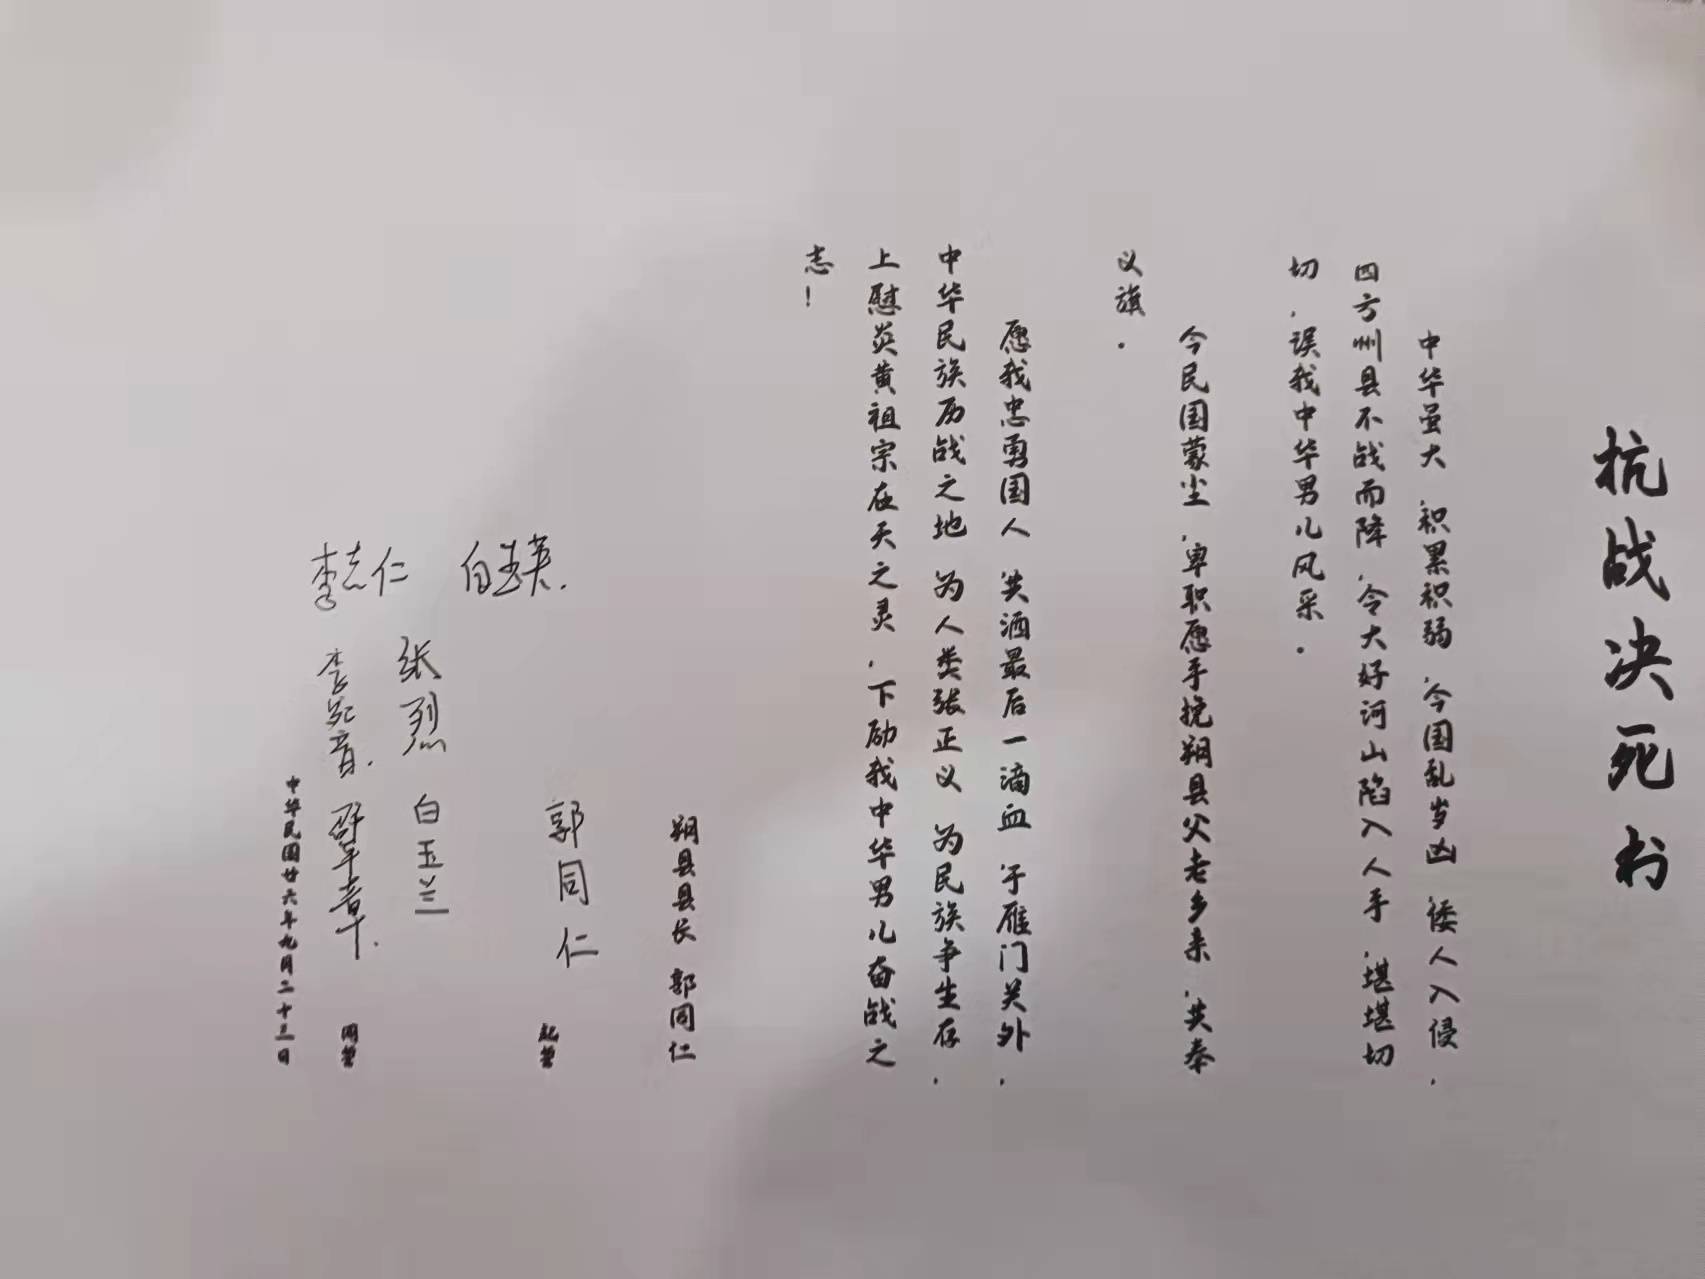 抗战决死书
中华虽大，积累积弱，今国乱岁凶，倭人入侵，
四方州县不战而降，令大好河山陷入人手，堪堪切
切，误我中华男儿风采。
今民国蒙尘，卑职愿手挽朔县父老乡亲，共奉
义旗。
愿我忠勇国人，共洒最后一滴血，于雁门关外，
中华民族历战之地，为人类张正义，为民族争生存，
上慰炎黄祖宗在天之灵，下励我中华男儿奋战之
志！
朔县县长 郭同仁
郭同仁
纪誓
张烈 白玉兰
李志仁
同誓
中华民国廿六年九月二十三日